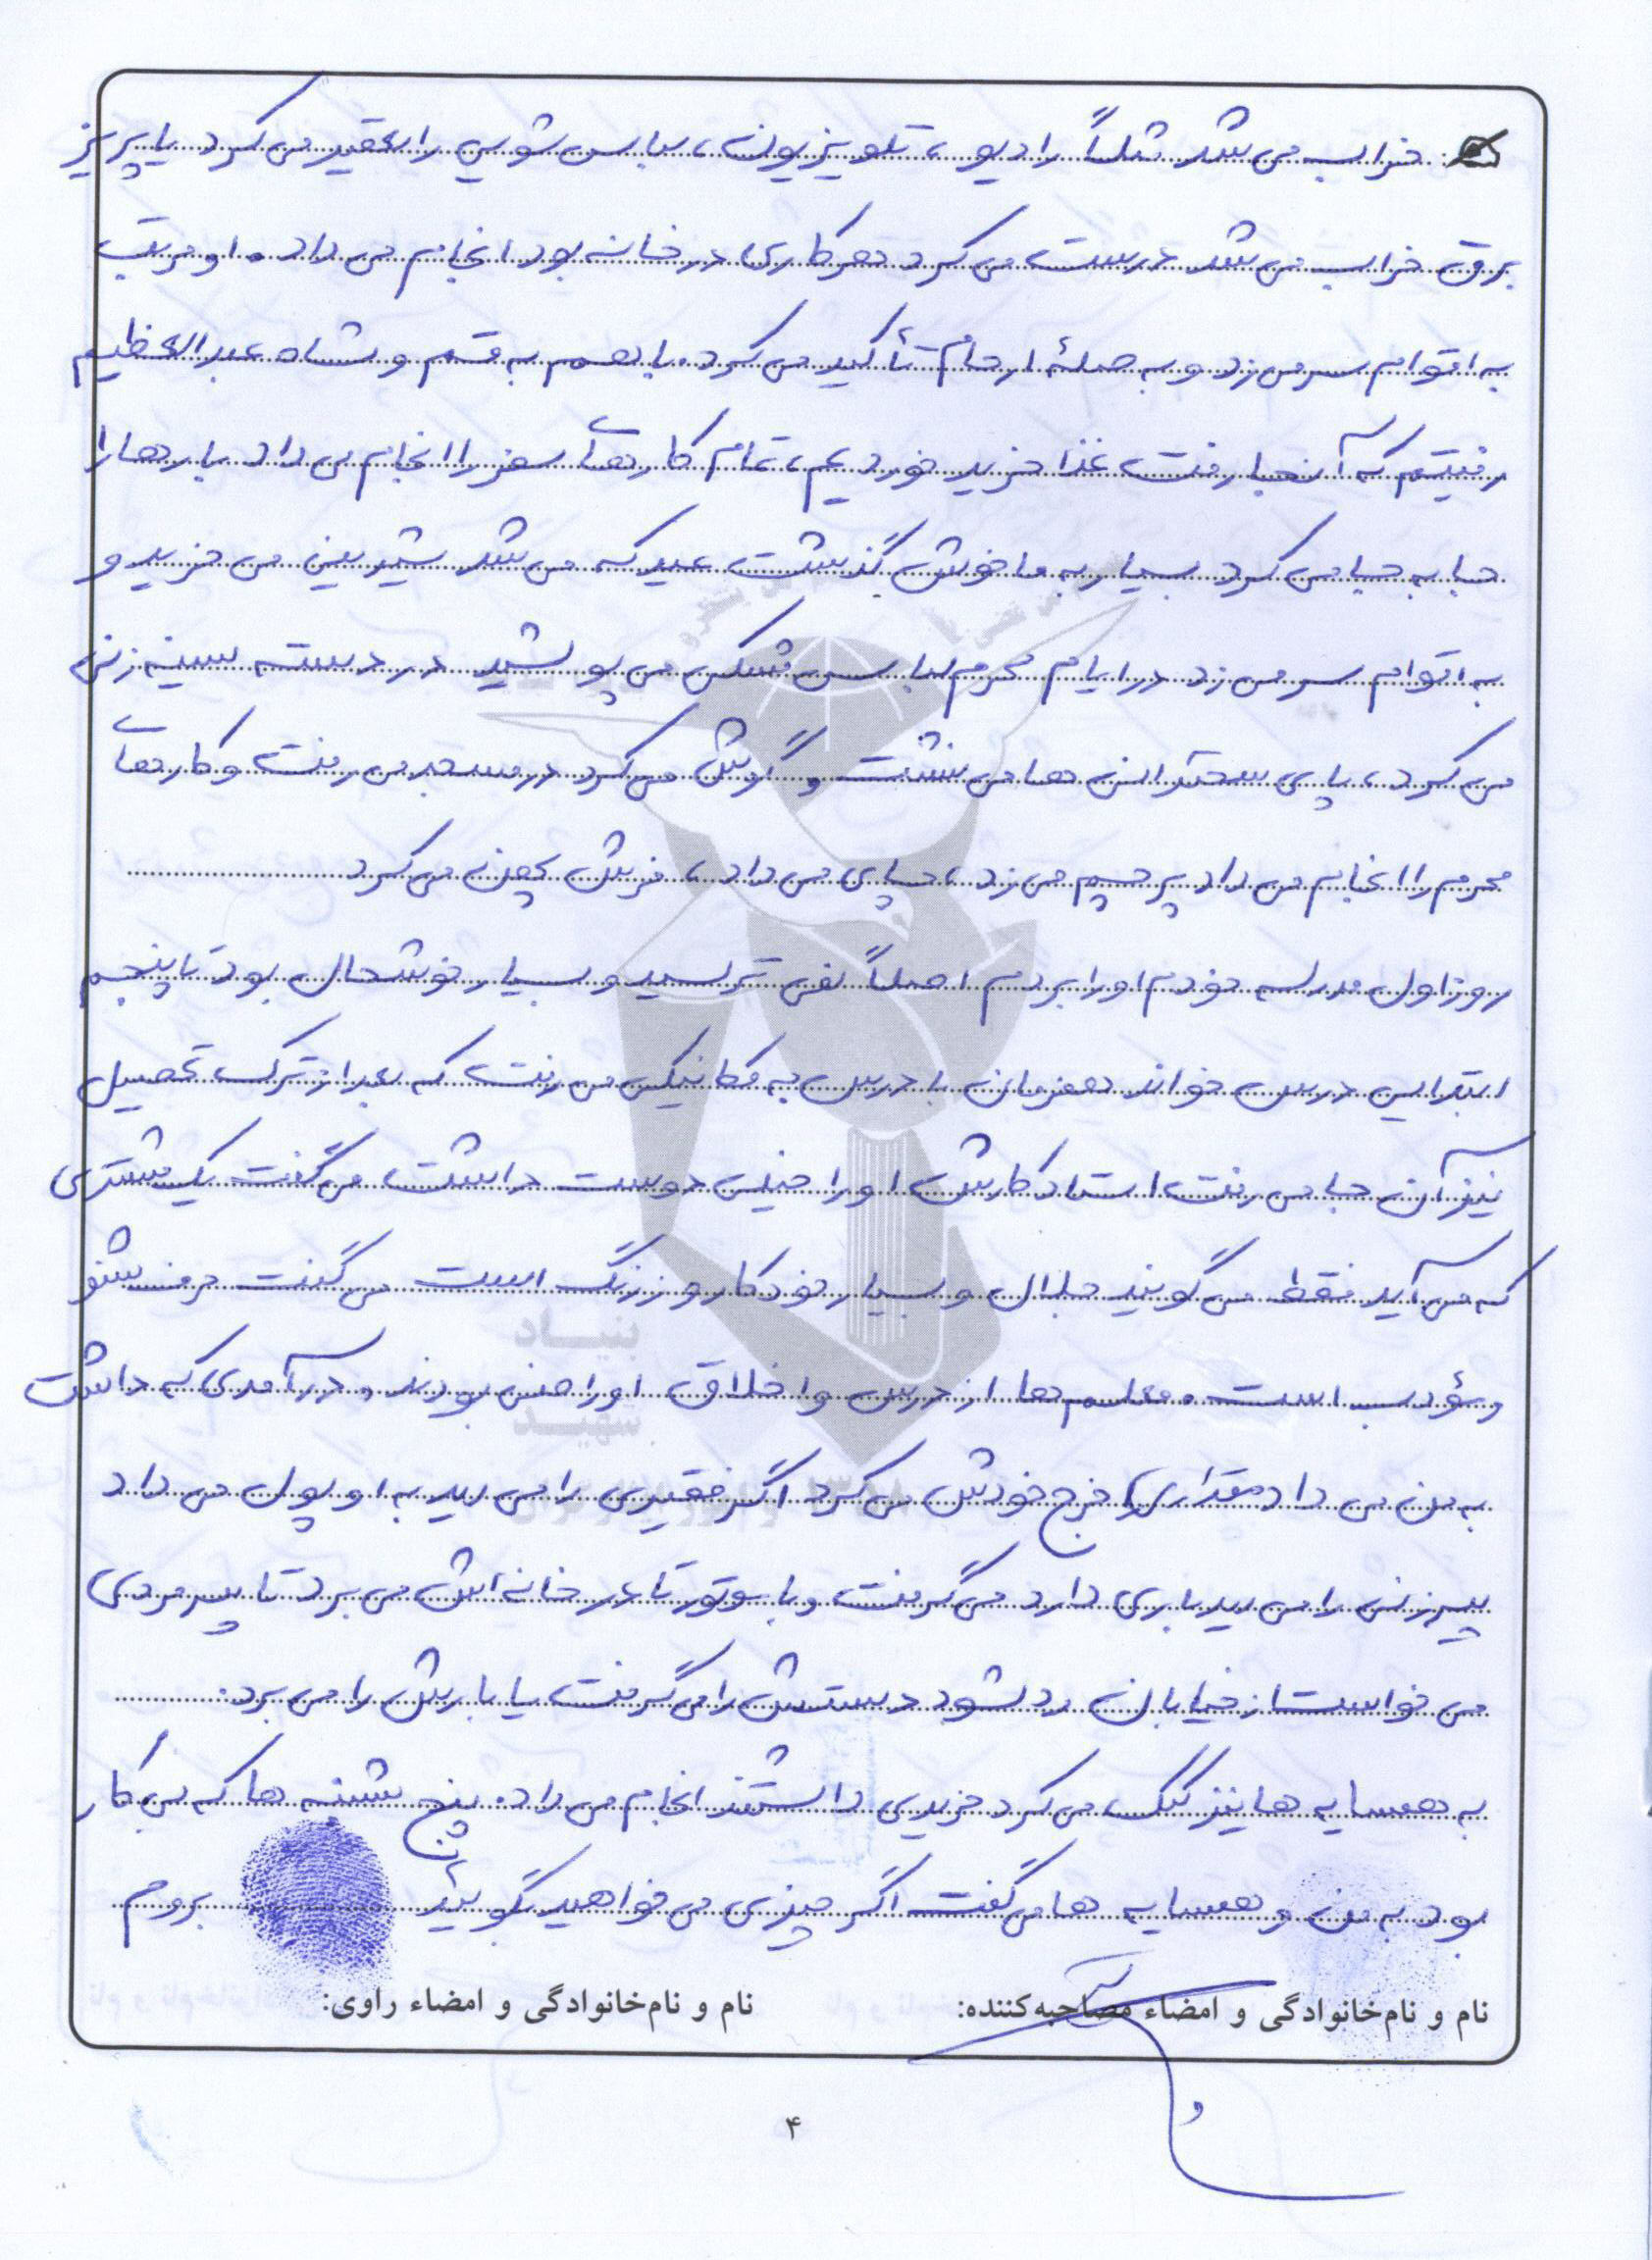 خراب می شد مثلاً رادیو، تلویزیون، لباس شویی را تعمیر می کرد یا پریز
برق خراب می شد درست می کرد هر کاری در خانه بود انجام می داد. او مرتب
به اقوام سر می زد و به صلۀ ارحام تأکید می کرد. با هم به قم و شاه عبدالعظیم
رفتیم که آنجا رفت غذا خرید خوردیم، تمام کارهای سفر را انجام می داد بارها را
جا به جا می کرد بسیار به ما خوش گذشت عید که می شد شیرینی می خرید و
به اقوام سر می زد در ایام محرم لباس مشکی می پوشید در دسته سینه زنی
می کرد، پای سخنرانی ها می نشست و گوش می کرد در مسجد می رفت و کارهای
محرم را انجام می داد پرچم می زد، چای می داد، فرش پهن می کرد
روز اول مدرسه خودم او را بردم اصلاً نمی ترسید و بسیار خوشحال بود تا پنجم
ابتدایی درس خواند همزمان با درس به مکانیکی می رفت که بعد از ترک تحصیل
نیز آن جا می رفت استاد کارش او را خیلی دوست داشت می گفت یک مشتری
که می آید فقط می گویند جلال و بسیار خودکار و زرنگ است می گفت حرف شنو
و مؤدب است. معلم ها از درس و اخلاق او راضی بودند. درآمدی که داشت
به من می داد مقداری را خرج خودش می کرد اگر فقیری را می دید به او پول می داد
پیرزنی را می دید باری دارد می گرفت و با موتور تا در خانه اش می برد تا پیرمردی
می خواست از خیابان رد شود دستش را می گرفت یا بارش را می برد.
به همسایه ها نیز کمک می کرد خریدی داشتند انجام می داد. پنج شنبه ها که بی کار
بود به من و همسایه ها می گفت اگر چیزی می خواهید بگویید بروم
نام و نام‌خانوادگی و امضاء مصاحبه‌کننده: نام و نام‌خانوادگی و امضاء راوی:
۴